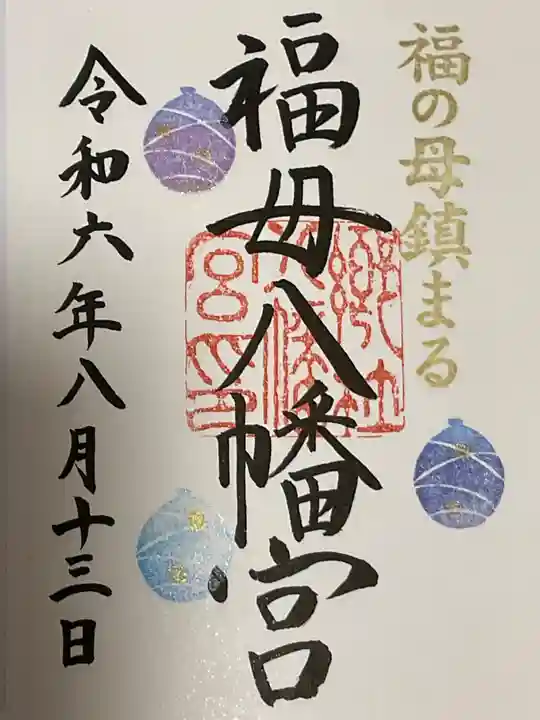 福の母鎮まる
福母八幡宮
令和六年八月十三日